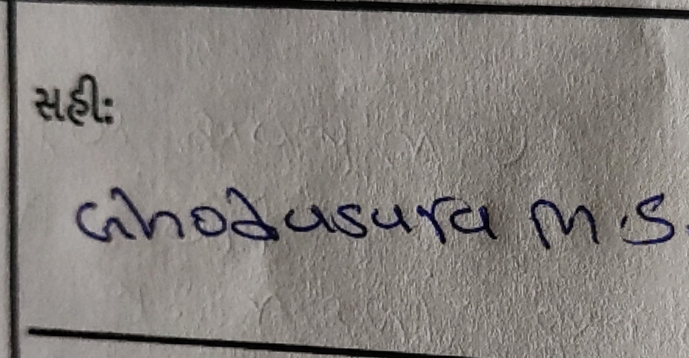 સહી:
Ghodasara M.S.